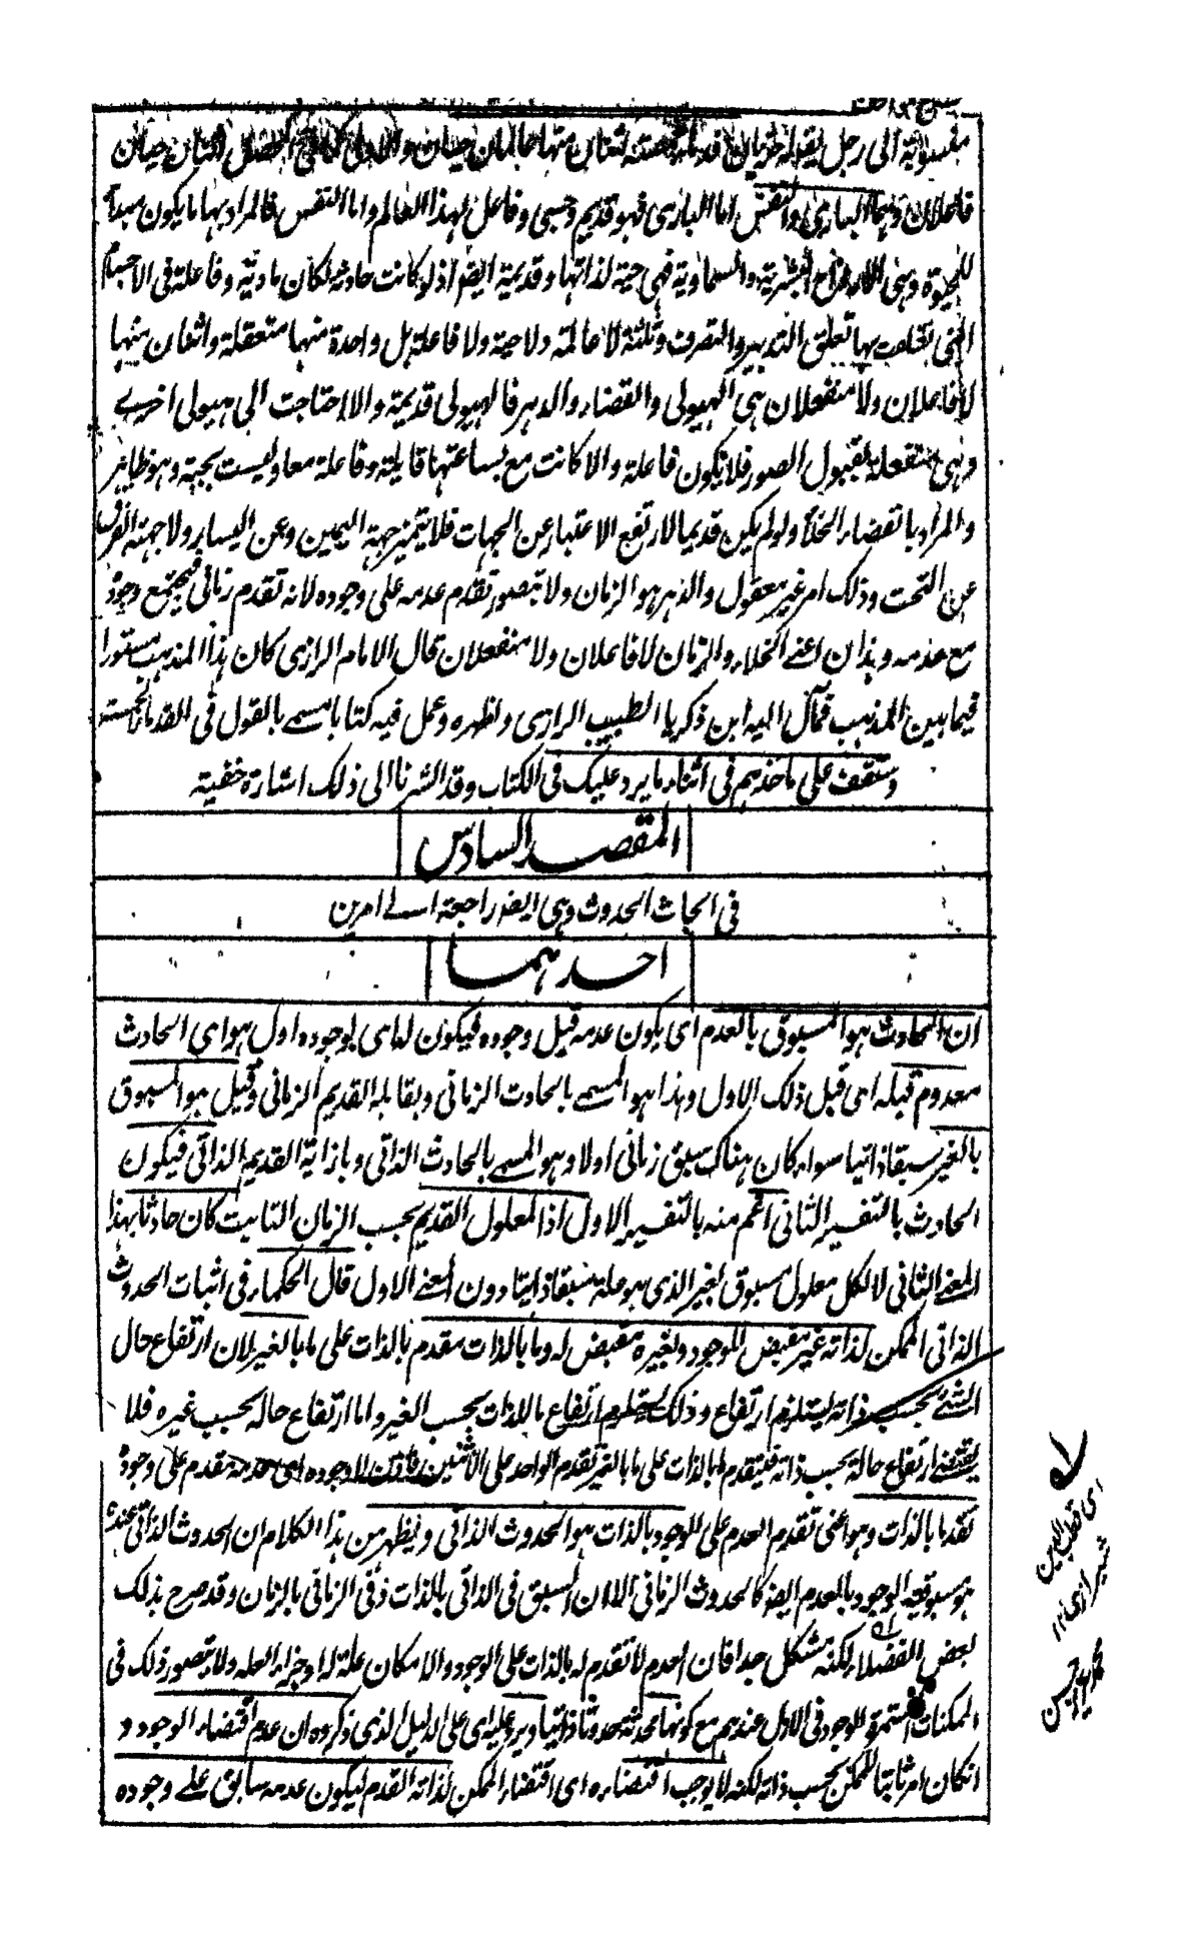 منسوبة الى رجل يقال له حرنان قدماء خمسة اثنان منها عالمان حيان اثنان حيان
فاعلان وهما البارى والنفس اما البارى فهو قديم وحى وفاعل لهذا العالم واما النفس فالمراد بها ما يكون مبدأ
للحيوة وهى الارواح البشرية والسماوية فهى حية لذاتها وقديمة ايضا اذ لو كانت حادثة لكان مادية وفاعلة فى الاجسام
التى تعلقت بها تعلق التدبير والتصرف وثلثة لا عالمة ولا حية ولا فاعلة بل واحدة منها منفعلة واثنان منها
لا فاعلان ولا منفعلان هى الهيولى والقضاء والدهر فالهيولى قديمة والا احتاجت الى هيولى اخرى
وهى منفعلة بقبول الصور فلا يكون فاعلة والا كانت مع بساطتها قابلة وفاعلة معا وليست بحية وهو ظاهر
والمراد بالقضاء الخلأ ولو لم يكن قديما لارتفع الاعتبار عن الجهات فلا يتميز جهة اليمين وعن اليسار ولا جهة الفوق
عن التحت وذلك امر غير معقول والدهر هو الزمان ولا يتصور تقدم عدمه على وجوده لانه تقدم زمانى فيجتمع وجوده
مع عدمه وهذان اعنى الخلاء والزمان لا فاعلان ولا منفعلان قال الامام الرازى كان هذا المذهب مستورا
فيما بين المذاهب فمال اليه ابن زكريا الطبيب الرازى واظهره وعمل فيه كتابا مسمى بالقول فى القدماء الخمسة
وستقف على ماخذهم فى اثناء ما يرد عليك فى الكتاب وقد اشرنا الى ذلك اشارة خفية
المقصد السادس
فى ابحاث الحدوث وهى ايضا راجعة الى امرين
احدهما
ان الحادث هو المسبوق بالعدم اى يكون عدمه قبل وجوده فيكون له اى لوجوده اول هو اى الحادث
معدوم قبله اى قبل ذلك الاول وهذا هو المسمى بالحادث الزمانى ويقابله القديم الزمانى وقيل هو المسبوق
بالغير سبقا ذاتيا سواء كان هناك سبق زمانى اولا وهو المسمى بالحادث الذاتى وبازائه القديم الذاتى فيكون
الحادث بالتفسير الثانى اعم منه بالتفسير الاول اذ المعلول القديم بحسب الزمان الثابت كان حادثا بهذا
المعنى الثانى لا لكل معلول مسبوق بغير الذى هو علة سبقا ذاتيا دون المعنى الاول قال الحكماء فى اثبات الحدوث
الذاتى الممكن لذاته غير مقتض للوجود ولغيره مقتض له وما بالذات مقدم بالذات على ما بالغير لان ارتفاع حال
الشئ بحسب ذاته يستلزم ارتفاع وذلك يستلزم ارتفاع ما للذات بحسب الغير واما ارتفاع حاله بحسب غيره فلا
يقتضى ارتفاع حاله بحسب ذاته فيتقدم ما بالذات على ما بالغير تقدم الواحد على الاثنين فاذن لا وجوده اى عدمه مقدم على وجوده
تقدما بالذات وهو اعنى تقدم العدم على الوجود بالذات هو الحدوث الذاتى ويظهر من هذا الكلام ان الحدوث الذاتى عندهم
هو مسبوقية الوجود بالعدم ايضا كالحدوث الزمانى الا ان السبق فى الذاتى بالذات وفى الزمانى بالزمان وقد صرح بذلك
بعض الفضلاء لكنه مشكل جدا فان العدم لا تقدم له بالذات على الوجود والا لكان علة له او جزء العلة ولا يتصور ذلك فى
الممكنات المستمرة الوجود فى الاول عندهم مع كونها محدثة حدوثا ذاتيا ويرد عليه اى على الدليل الذى ذكروه ان عدم اقتضاء الوجود و
ان كان امرا ثابتا للممكن بحسب ذاته لكنه لا يوجب اقتضاءه اى اقتضاء الممكن لذاته القدم ليكون عدمه سابق على وجوده
اى قطب الدين
شيرازى ١٢